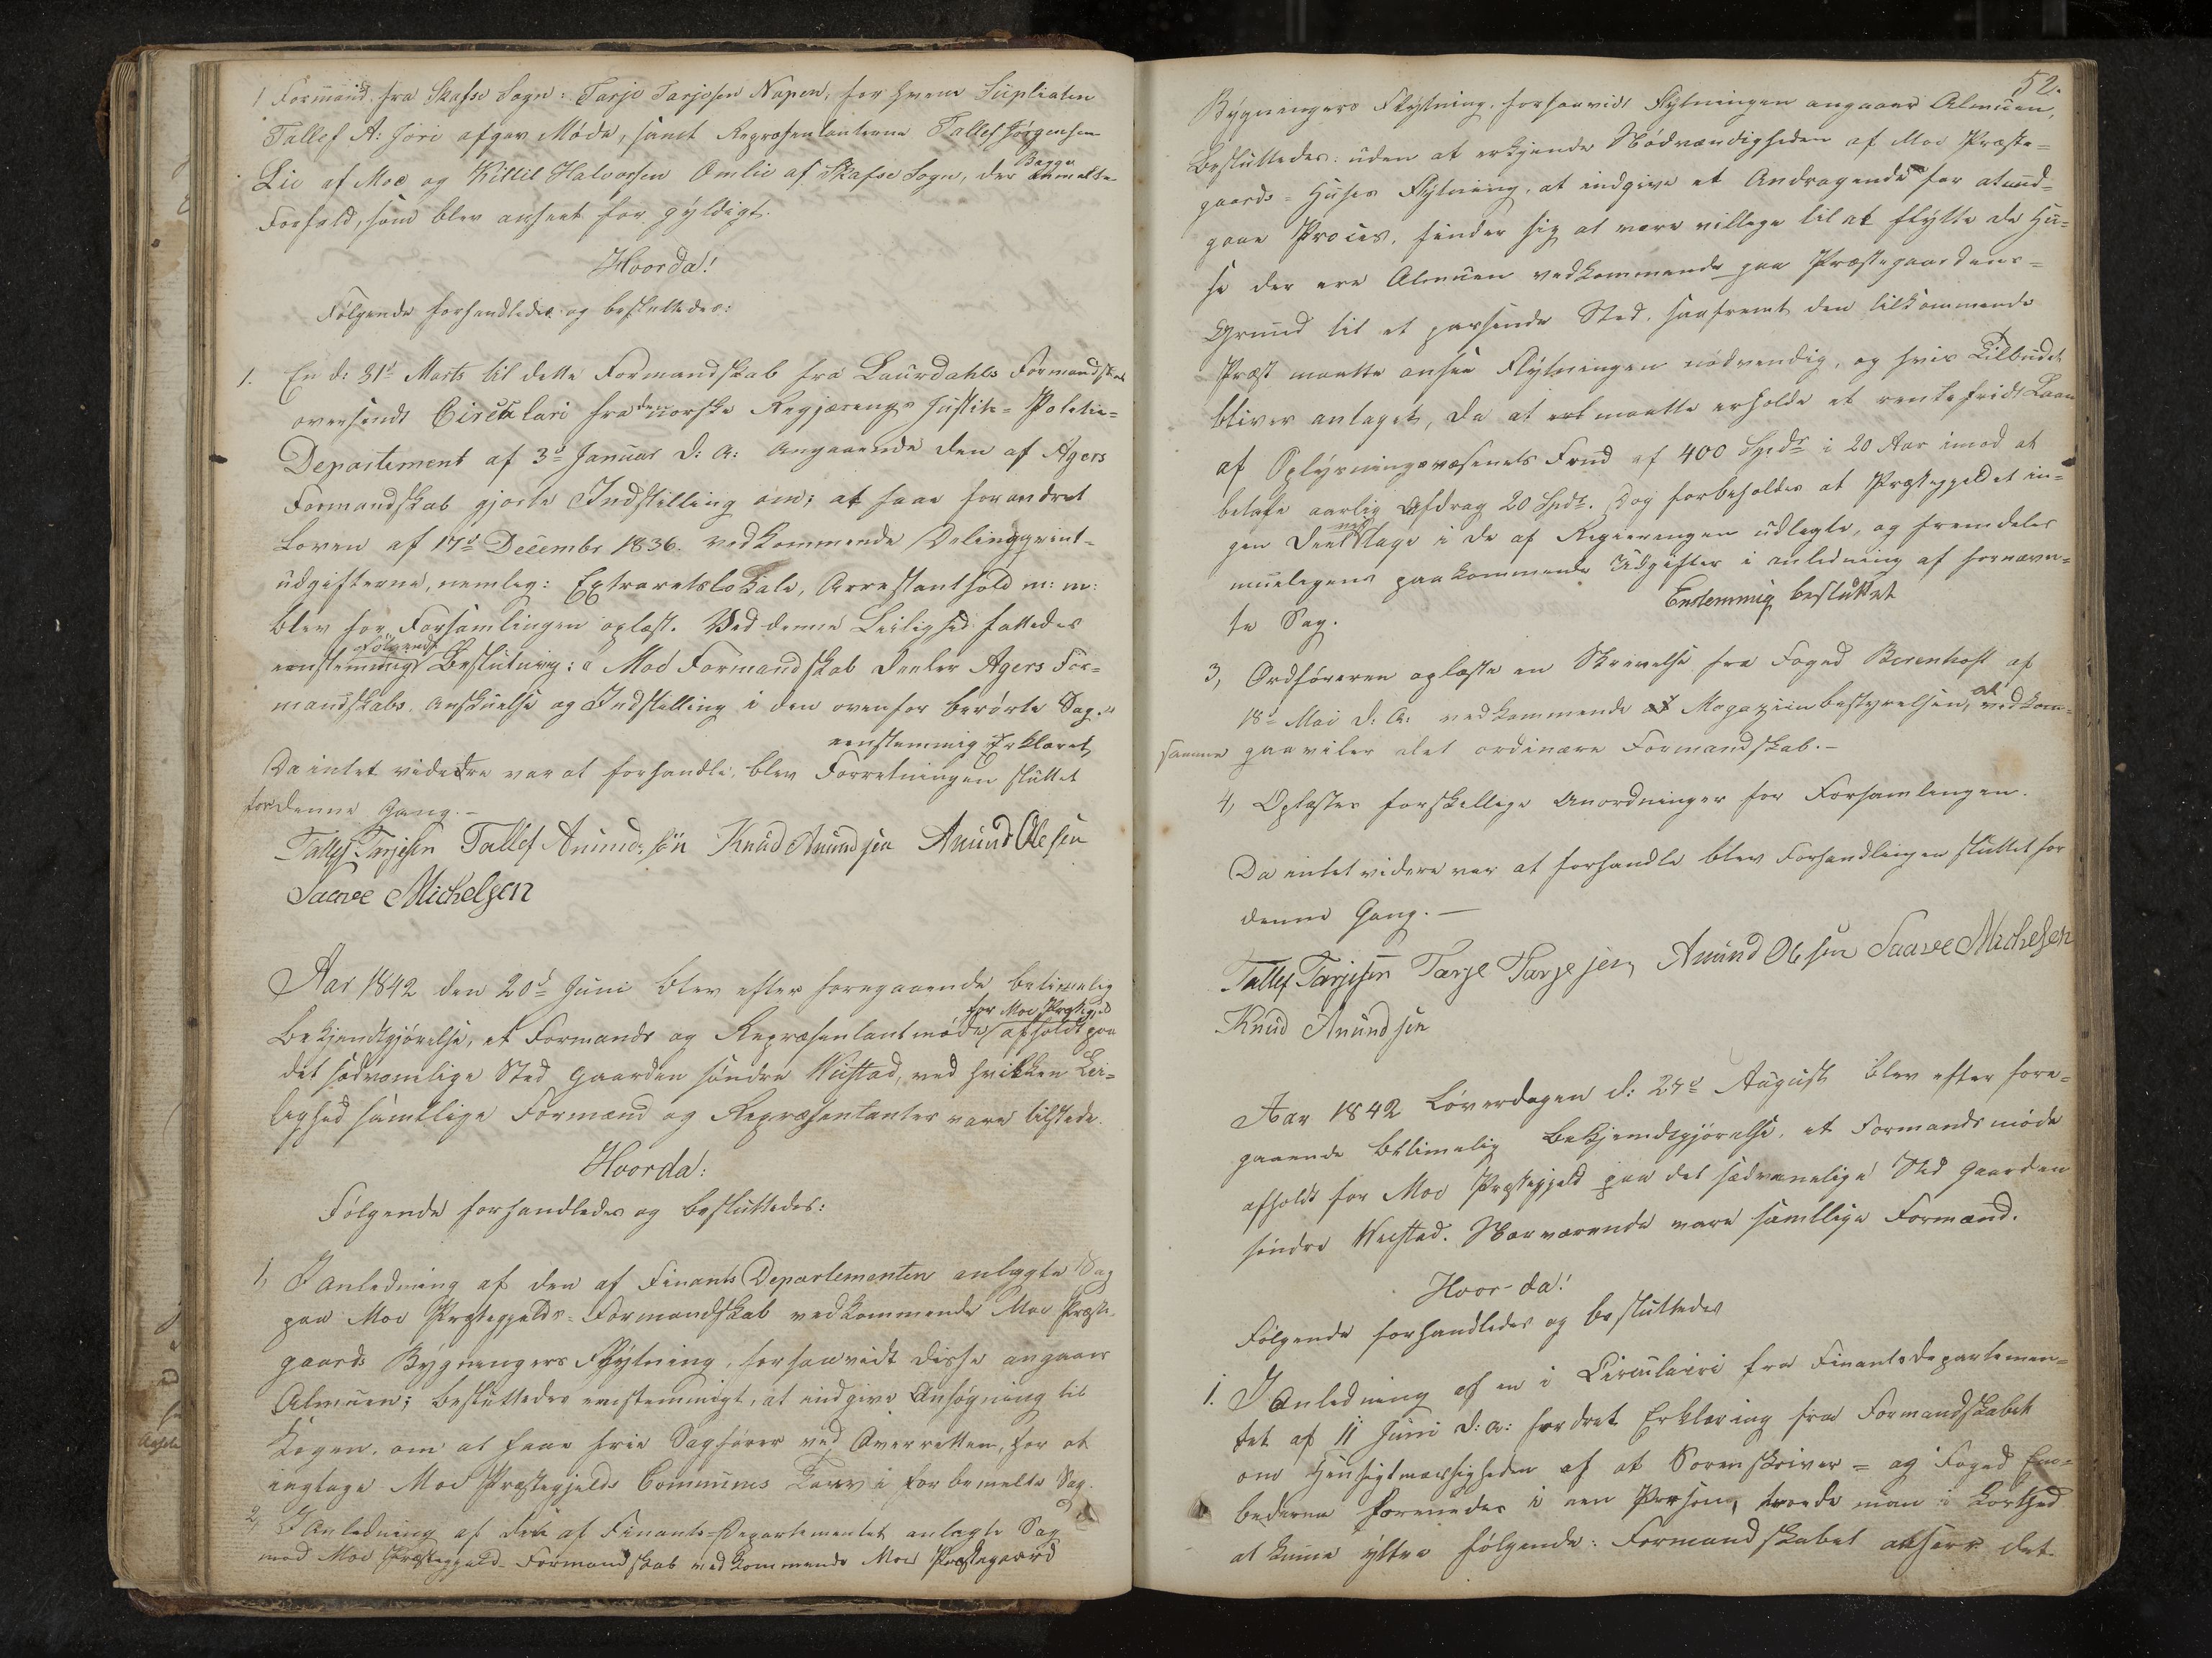 1 Formand fra Skafse Sogn: Tarje Tarjesen Napen, for hvem Supliaten
Tallef A: Jori afgav Møde, samt Repræsentanterne Tallef Jørgensen
Lie af Moe og Killil Halvorsen Omlie af Skafse Sogn, der Begge anmelte
Forfald, som blev anseet for gyldigt.
Hvorda!
Følgende forhandledes og besluttedes:
1. En d: 31d Marts til dette Formandskab fra Laurdahls Formandskab
oversendt Circulari fra den norske Regjærings Justits- Politie-
Departement af 3d Januar d: A: angaaende den af Agers
Formandskab gjorte Indstilling om; at faae forandret
Loven af 17d Decembr 1836. vedkommende Delinqvent-
udgifterne, nemlig: Extraretslokale, Arrestanthold m: m:
blev for Forsamlingen oplæst. Ved denne Leilighed fattedes
eenstemmigt følgende Beslutning: "Moe Formandskab deeler Agers For-
mandskabs Anskuelse og Indstilling i den ovenfor berørte Sag."
eenstemmig Erklæret
Da intet videre var at forhandle, blev Forretningen sluttet
for denne Gang.-
Tallef Tarjesen Tallef Anundssøn Knud Anundsen Anund Olesen
Saave Michelsen
Aar 1842 den 20d Juni blev efter foregaaende betimelig
Bekjendtgjørelse, et Formands og Repræsentantmøde for Moe Præstegjeld afholdt paa
det sædvanelige Sted Gaarden søndre Nustad, ved hvilken Lei-
lighed samtlige Formænd og Repræsentanter vare tilstede.
Hvorda:
Følgende forhandledes og besluttedes:
1, I Anledning af den af Finants Departementen anlagte Sag
paa Moe Præstegjelds-Formandskab vedkommende Moe Præste-
gaards Bygningers Flytning, forsaavidt disse angaaer
Almuen; besluttedes eenstemmigt, at indgive Ansøgning til
Kogen. om at faae frie Sagfører ved Overretten, for at
iagtage Moe Præstegjelds Communes Tarv i forbemelte Sag.
2, I Anledning af den af Finants-Departementet anlagte Sag
mod Moe Præstegjeld-Formandskab vedkommende Moe Præstegaard
52.
Bygningers Flytning, forsaavidt Flytningen angaaer Almuen,
besluttedes: uden at erkjende Nødvendigheden af Moe Præste-
gaards-Huses Flytning, at indgive et Andragende for at und-
gaae Proces, finder sig at være villige til at flytte de Hu-
se der ere Almuen vedkommende paa Præstegaardens-
Grund til et passende Sted, saafremt den tilkommende
Præst maatte ansee Flytningen nødvendig, og hvis Tilbudet
bliver antaget, da at maatte erholde et rentefridt Laan
af Oplysningsvæsenets Fond af 400 Spdr i 20 Aar imod at
betale aarlig Afdrag 20 Spdr. Dog forbeholdes at Præstegjeldet in-
gen Deel vil tage i de af Regjeringen udlagte, og fremdeles
muelegens paakommende Udgifter i Anledning af fornævn-
te Sag. Enstemmig besluttet
3, Ordføreren oplæste en Skrivelse fra Foged Berenhoft af
18d Mai d: A: vedkommende Magaziinbestyrelsen, at vedkom-
samme paaviler det ordinære Formandskab.-
4, Oplæstes forskellige Anordninger for Forsamlingen.
Da intet videre var at forhandle blev Forhandlingen sluttet for
denne Gang.-
Tallef Tarjesen Tarje Tarjesen Anund Olesen Saave Michelsen
Knud Anundsen
Aar 1842 Løverdagen d: 27d August blev efter fore-
gaaende betimelig Bekjendtgjørelse, et Formandsmøde
afholdt for Moe Præstegjeld paa det sædvanelige Sted Gaarden
søndre Nustad. Nærværende vare samtlige Formænd.
Hvor-da!
Følgende forhandledes og besluttedes
1. I Anledning af en i Circulairi fra Finantsdepartemen-
tet af 11 Juni d: a: fordret Erklæring fra Formandskabet
om Hensigtmæssigheden af at Sorenskriver- og Foged Em-
bederne forenedes i een Person, troede man i Korthed
at kunne yttre følgende: Formandskabet anseer det